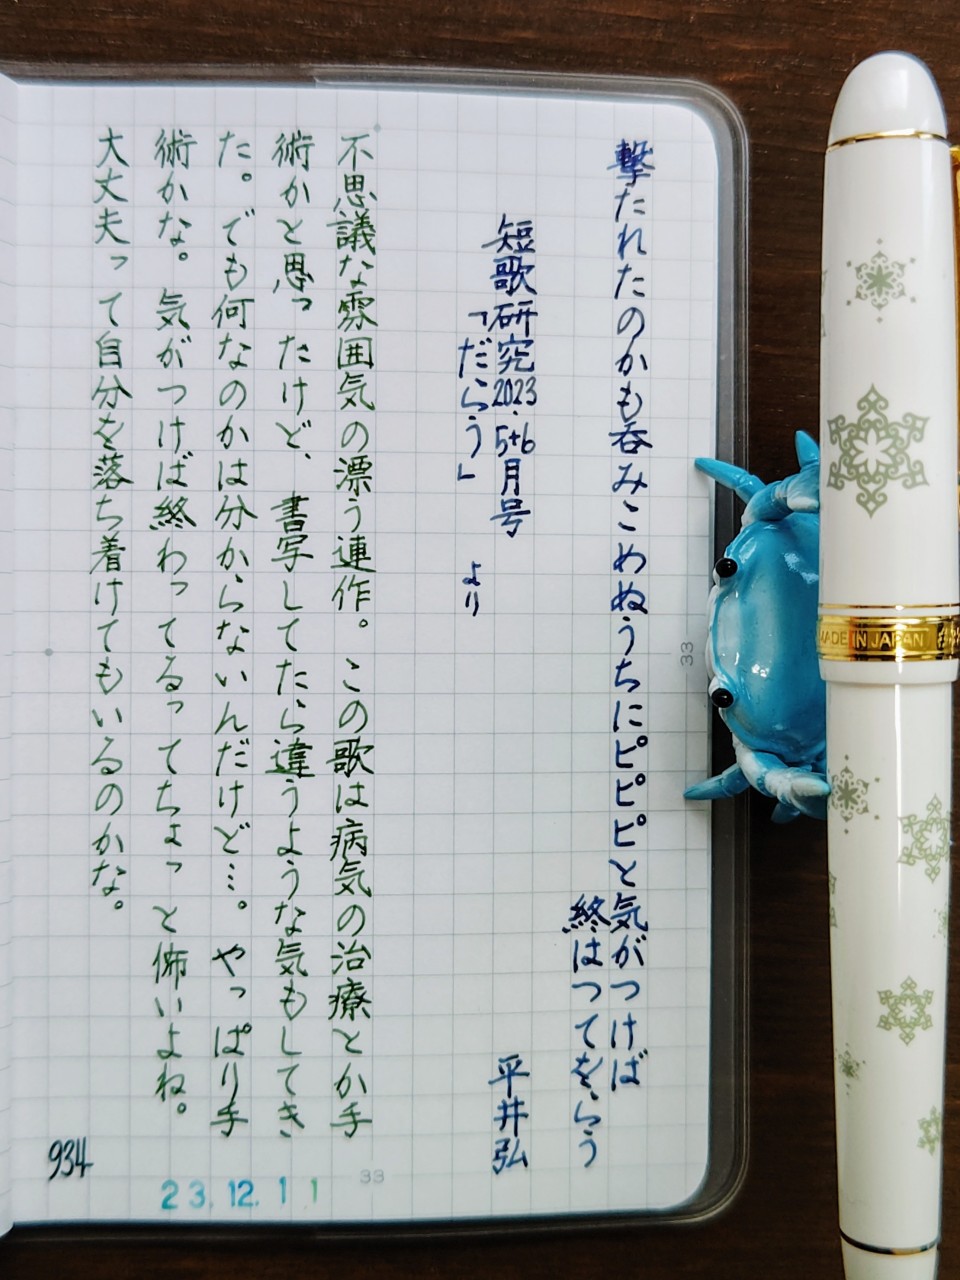 撃たれたのかも呑みこめぬうちにピピピと気がつけば
終はつてをらう
短歌研究2023.5+6月号
平井弘
「だらう」
より
不思議な雰囲気の漂う連作。この歌は病気の治療とか手
術かと思ったけど、書写してたら違うような気もしてき
た。でも何なのかは分からないんだけど…。やっぱり手
術かな。気がつけば終わってるってちょっと怖いよね。
大丈夫って自分を落ち着けてもいるのかな。
934
23.12.11
33
33
MADE IN JAPAN